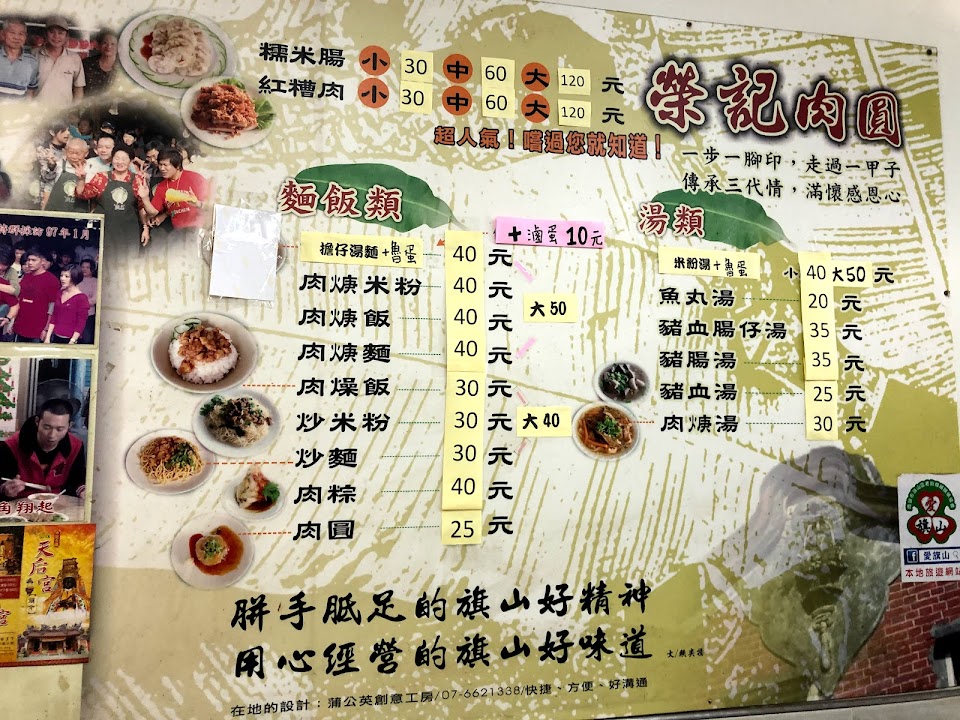 糯米腸 小 30 中 60 大 120 元
紅糟肉 小 30 中 60 大 120 元
超人氣！嚐過您就知道！
榮記肉圓
一步一腳印，走過一甲子
傳承三代情，滿懷感恩心
麵飯類
+滷蛋10元
擔仔湯麵+魯蛋 40 元
肉焿米粉 40 元
肉焿飯 40 元 大50
肉焿麵 40 元
肉燥飯 30 元
炒米粉 30 元 大40
炒麵 30 元
肉粽 40 元
肉圓 25 元
湯類
米粉湯+魯蛋 小 40 大50 元
魚丸湯 20 元
豬血腸仔湯 35 元
豬腸湯 35 元
豬血湯 25 元
肉焿湯 30 元
胼手胝足的旗山好精神
用心經營的旗山好味道
在地的設計：蒲公英創意工房/07-6621338/快捷、方便、好溝通
97年1月
角翔起
天后宮
愛
旗山
愛旗山
本地旅遊網站